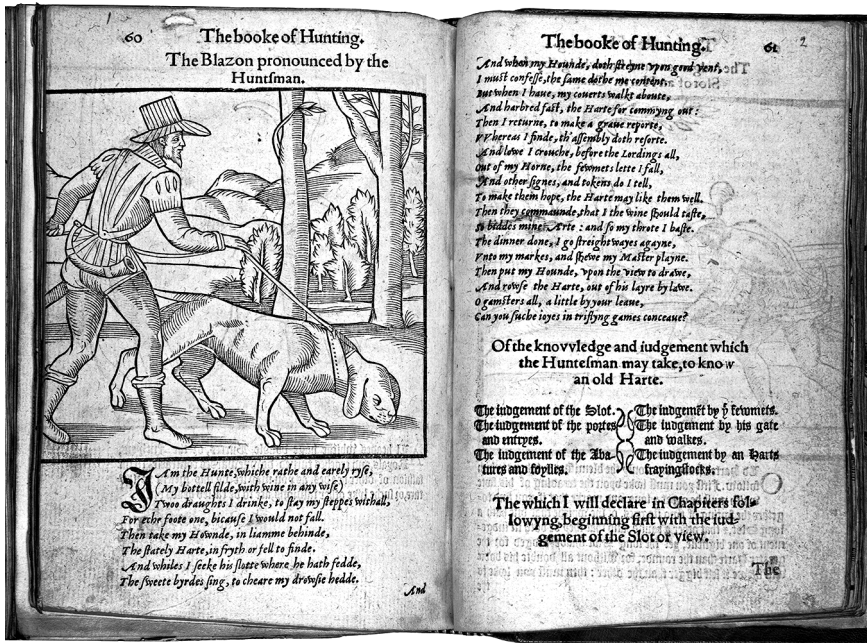 60 The booke of Hunting.
The Blazon pronounced by the
Huntſman.
I Am the Hunte, whiche rathe and earely ryſe,
(My bottell filde, with wine in any wiſe)
Twoo draughts I drinke, to ſtay my ſteppes withall,
For eche foote one, bicauſe I would not fall.
Then take my Hownde, in liamme behinde,
The ſtately Harte, in fryth or fell to finde.
And whiles I ſeeke his ſlotte where he hath fedde,
The ſweete byrdes ſing, to cheare my drowſie hedde.
And
The booke of Hunting. 61 2
And when my Hounde, doth ſtreyne vpon good vent,
I muſt confeſſe, the ſame dothe me content,
But when I haue, my couerts walkt aboute,
And harbred faſt, the Harte for commyng out:
Then I returne, to make a graue reporte,
VVhereas I finde, th'aſſembly doth reſorte.
And lowe I crouche, before the Lordings all,
Out of my Horne, the fewmets lette I fall,
And other ſignes, and tokens do I tell,
To make them hope, the Harte may like them well.
Then they commaunde, that I the wine ſhould taſte,
So biddes mine Arte: and ſo my throte I baſte.
The dinner done, I go ſtreightwayes agayne,
Vnto my markes, and ſhewe my Maſter playne.
Then put my Hounde, vpon the view to drawe,
And rowſe the Harte, out of his layre by lawe.
O gamſters all, a little by your leaue,
Can you ſuche ioyes in trifling games conceaue?
Of the knovvledge and iudgement which
the Hunteſman may take, to know
an old Harte.
The iudgement of the Slot.
The iudgement of the portes
and entryes.
The iudgement of the Aba-
tures and foylles.
The iudgemẽt by ẙ fewmets.
The iudgement by his gate
and walkes.
The iudgement by an Harts
frayingſtocks.
The which I will declare in Chapters fol-
lowyng, beginning firſt with the iud-
gement of the Slot or view.
The